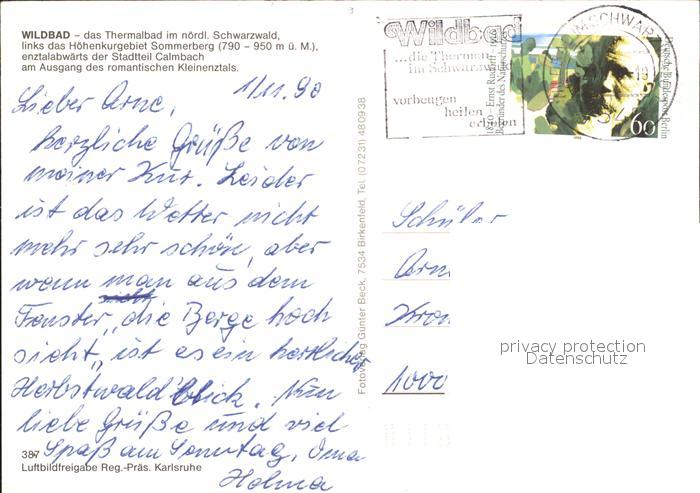 WILDBAD – das Thermalbad im nördl. Schwarzwald,
links das Höhenkurgebiet Sommerberg (790 – 950 m ü. M.),
enztalabwärts der Stadtteil Calmbach
am Ausgang des romantischen Kleinenztals.
1/11.90
Lieber Arne,
herzliche Grüße von
meiner Kur. Leider
ist das Wetter nicht
mehr sehr schön, aber
wenn man aus dem
Fenster, die Berge hoch
sieht, ist es ein herrlicher
Herbstwaldblick. Nun
liebe Grüße und viel
Spaß am Sonntag, Oma
Helma
387
Luftbildfreigabe Reg.-Präs. Karlsruhe
Fotoverlag Günter Beck, 7534 Birkenfeld, Tel. (07231) 480938
Wildbad
...die Thermen
im Schwarzw
vorbeugen
heilen
erholen
1840 - Ernst Rudorff - 1916
Begründer des Naturschutzes
Deutsche Bundespost Berlin
60
IM SCHWAR
Schüler
Arn
Kron
1000
privacy protection
Datenschutz